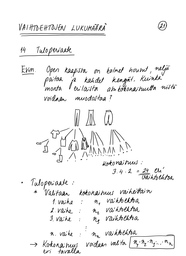 VAIHTOEHTOJEN LUKUMÄÄRÄ
21
14 Tuloperiaate
Esim. Open kaapissa on kolmet housut, neljä
paitaa ja kahdet kengät. Kuinka
monta erilaista asukokonaisuutta niistä
voidaan muodostaa?
kokonaisuus:
3 · 4 · 2 = 24 eri
vaihtoehtoa
• Tuloperiaate:
• Valitaan kokonaisuus vaiheittain
1. vaihe : n₁ vaihtoehtoa
2. vaihe : n₂ vaihtoehtoa
3. vaihe : n₃ vaihtoehtoa
n. vaihe : nₙ vaihtoehtoa
→ Kokonaisuus voidaan valita n₁·n₂·n₃·...·nₙ
eri tavalla